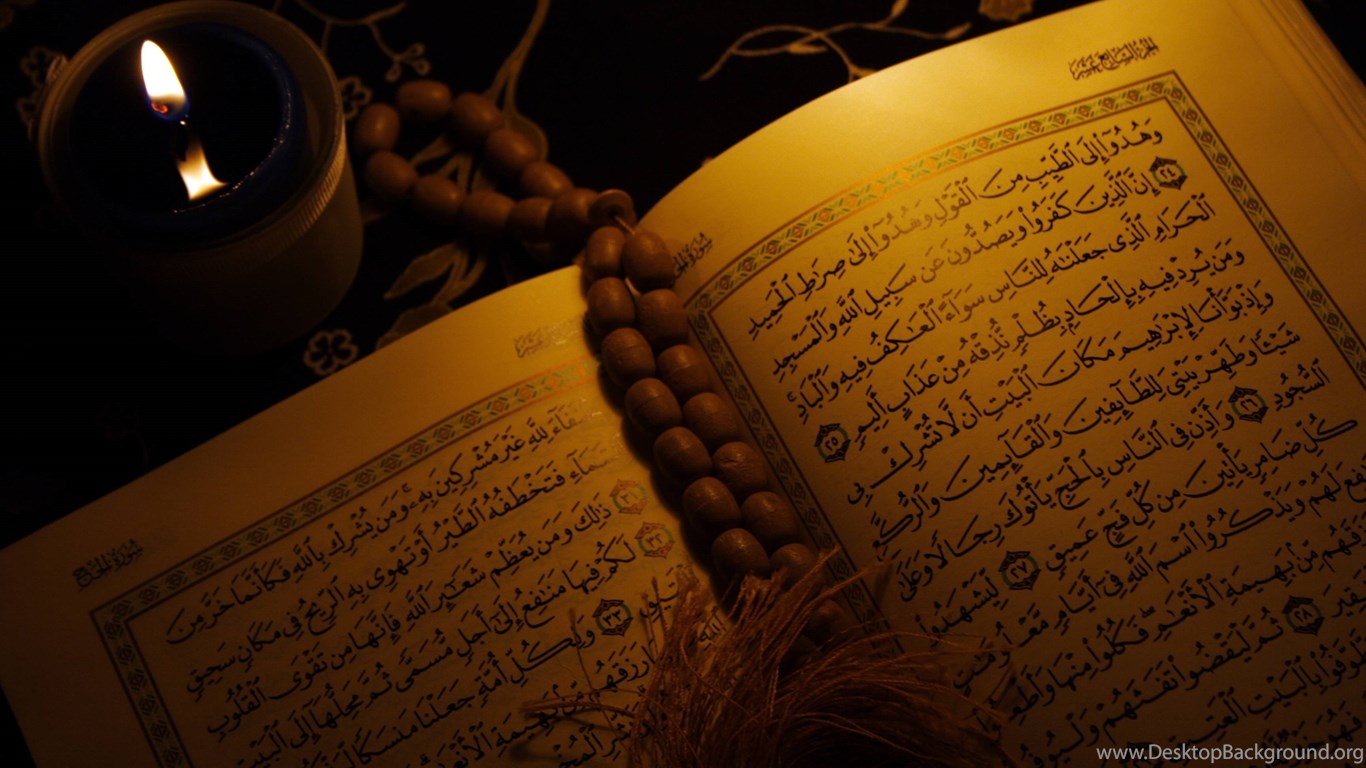 الجزء السابع عشر
وَهُدُوٓا۟ إِلَى ٱلطَّيِّبِ مِنَ ٱلْقَوْلِ وَهُدُوٓا۟ إِلَىٰ صِرَٰطِ ٱلْحَمِيدِ
٢٤ إِنَّ ٱلَّذِينَ كَفَرُوا۟ وَيَصُدُّونَ عَن سَبِيلِ ٱللَّهِ وَٱلْمَسْجِدِ
ٱلْحَرَامِ ٱلَّذِى جَعَلْنَٰهُ لِلنَّاسِ سَوَآءً ٱلْعَٰكِفُ فِيهِ وَٱلْبَادِ ۚ
وَمَن يُرِدْ فِيهِ بِإِلْحَادٍۭ بِظُلْمٍ نُّذِقْهُ مِنْ عَذَابٍ أَلِيمٍ ٢٥
وَإِذْ بَوَّأْنَا لِإِبْرَٰهِيمَ مَكَانَ ٱلْبَيْتِ أَن لَّا تُشْرِكْ بِى
شَيْـًٔا وَطَهِّرْ بَيْتِىَ لِلطَّآئِفِينَ وَٱلْقَآئِمِينَ وَٱلرُّكَّعِ
ٱلسُّجُودِ ٢٦ وَأَذِّن فِى ٱلنَّاسِ بِٱلْحَجِّ يَأْتُوكَ رِجَالًا وَعَلَىٰ
كُلِّ ضَامِرٍ يَأْتِينَ مِن كُلِّ فَجٍّ عَمِيقٍ ٢٧ لِّيَشْهَدُوا۟
لَهُمْ وَيَذْكُرُوا۟ ٱسْمَ ٱللَّهِ فِىٓ أَيَّامٍ
مِّنۢ بَهِيمَةِ ٱلْأَنْعَٰمِ ۖ فَكُلُوا۟ مِنْهَا
٢٨ ثُمَّ لْيَقْضُوا۟ تَفَثَهُمْ
بِٱلْبَيْتِ
سورة الحج
لِلَّهِ غَيْرَ مُشْرِكِينَ بِهِۦ ۚ وَمَن يُشْرِكْ بِٱللَّهِ فَكَأَنَّمَا خَرَّ مِنَ
فَتَخْطَفُهُ ٱلطَّيْرُ أَوْ تَهْوِى بِهِ ٱلرِّيحُ فِى مَكَانٍ سَحِيقٍ
٣١ ذَٰلِكَ وَمَن يُعَظِّمْ شَعَٰٓئِرَ ٱللَّهِ فَإِنَّهَا مِن تَقْوَى ٱلْقُلُوبِ
٣٢ لَكُمْ فِيهَا مَنَٰفِعُ إِلَىٰٓ أَجَلٍ مُّسَمًّى ثُمَّ مَحِلُّهَآ إِلَى ٱلْبَيْتِ
٣٣ وَلِكُلِّ أُمَّةٍ جَعَلْنَا مَنسَكًا
رَزَقَهُم
www.DesktopBackground.org